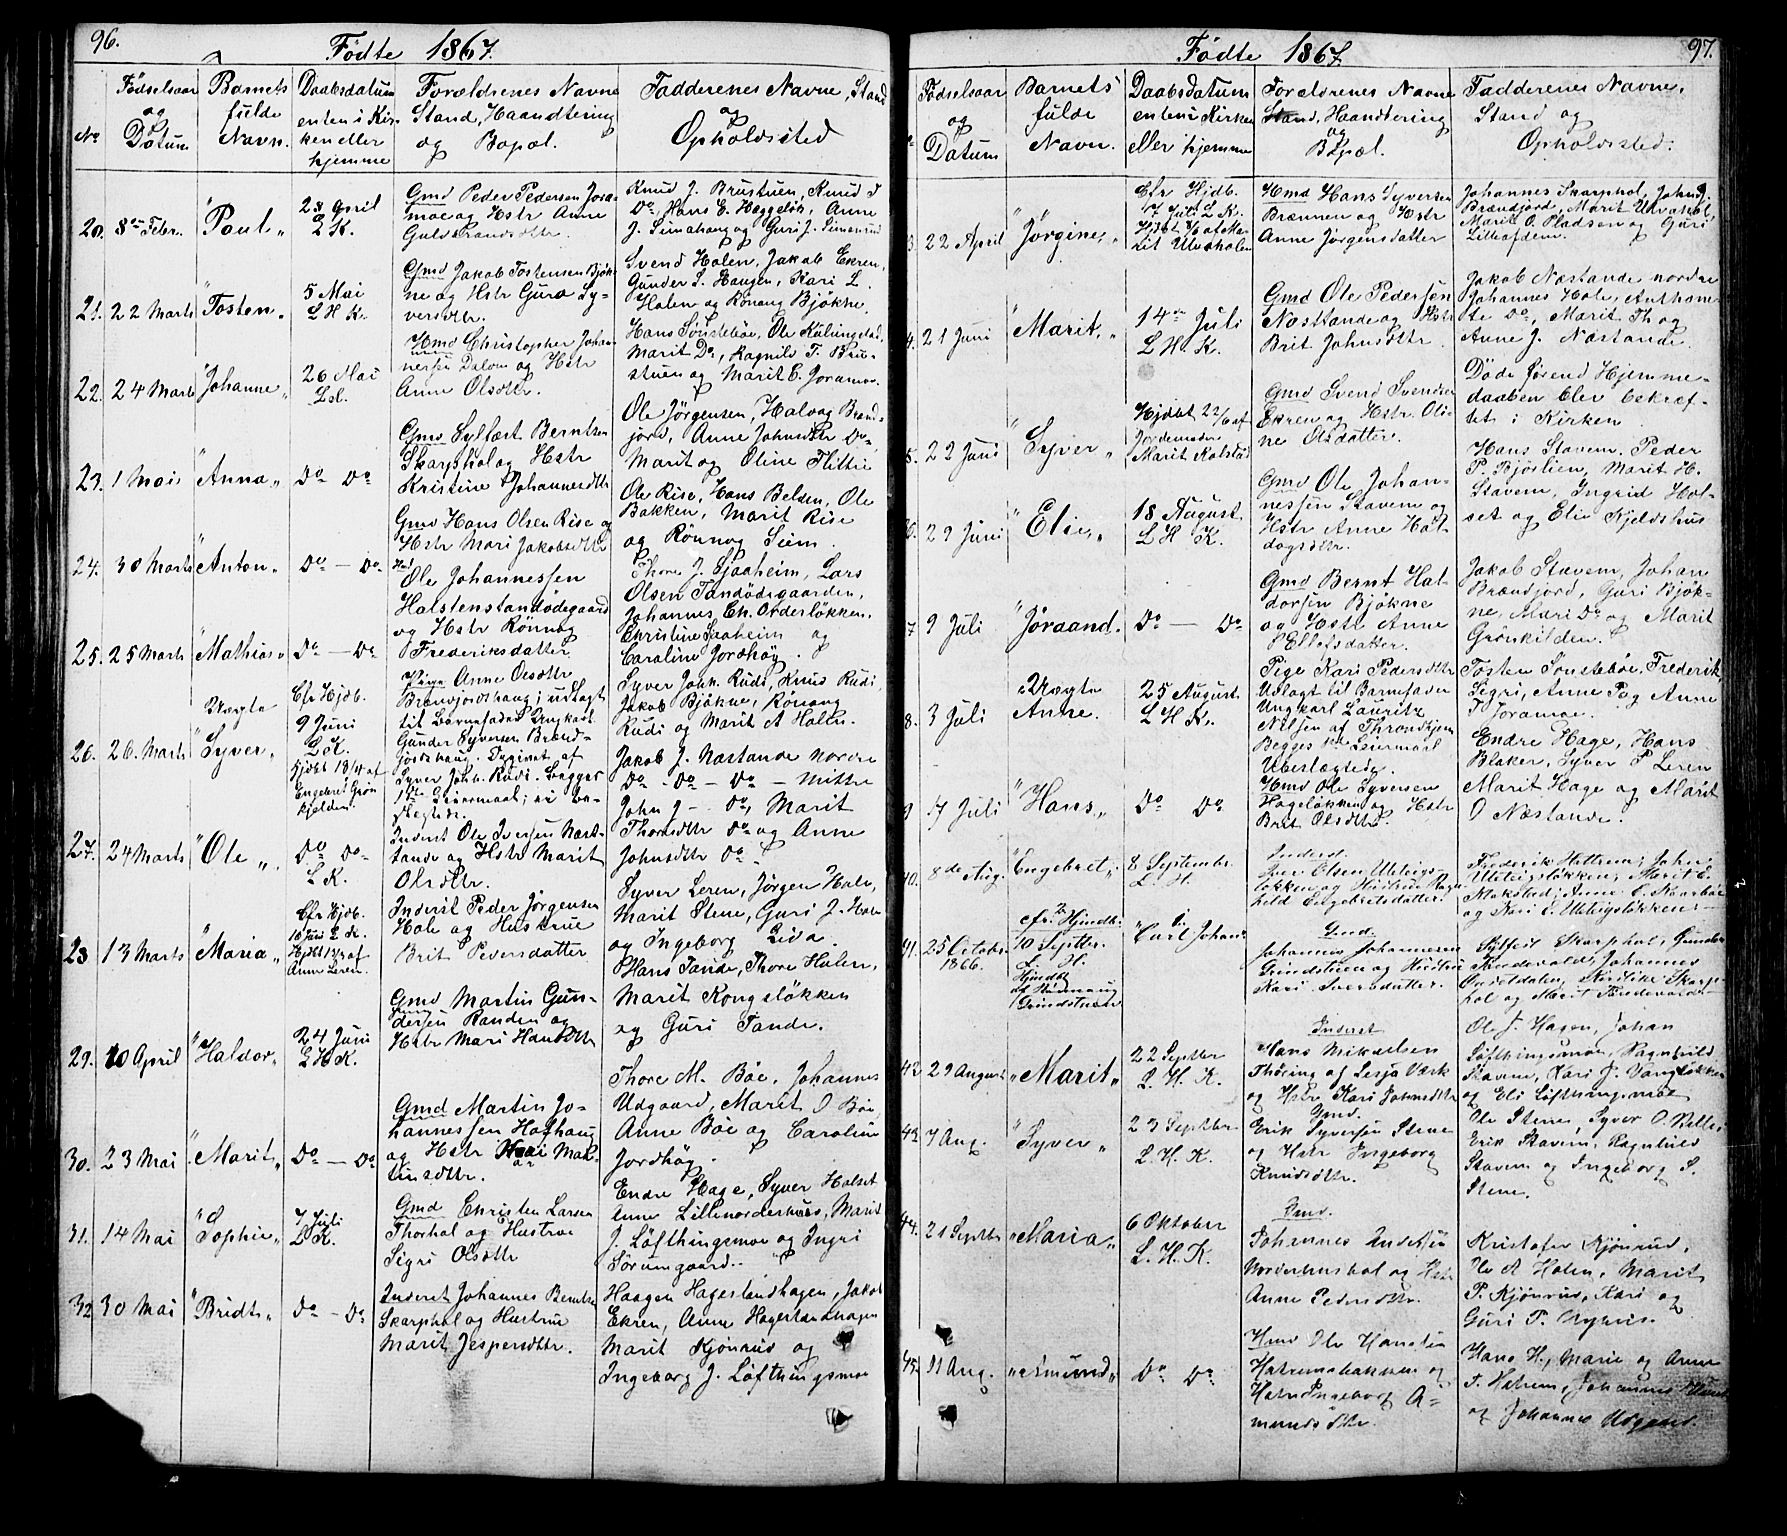 96.
Fødte 1867.
No
Fødselsaar og Datum
Barnets fulde Navn.
Daabsdatum enten i Kirken eller hjemme
Forældrenes Navne Stand, Haandtering og Bopæl.
Faddernes Navne, Stand og Opholdssted
20. 8de Febr. "Poul"
28 April
L K.
Gmd Peder Pedersen Jora-
moe og Hstr Anne
Guldbrandsdttr.
Knud J. Brustuen, Knud T
Do, Hans E. Hæggeløk, Anne
J. Simahaug og Guri J. Simenrud
21. 22 Marts "Tosten"
5 Mai
L H K.
Gmd Jakob Tostensen Bjøk-
ne og Hstr Guro Sy-
versdttr.
Svend Holen, Jakob Ekren,
Gunder S. Haugen, Kari L.
Holen og Rønaug Bjøkne
22. 24 Marts "Johanne"
26 Mai
Lsl.
Hmd Christopher Johan-
nessen Dalom og Hstr
Anne Olsdttr.
Hans Søndebøe, Ole Kulingstad,
Marit Do, Ragnild T. Bru-
stuen og Marit E. Joramoe.
23. 1 Mai "Anna"
Do Do
Gmd Sylfæst Berntsen
Skarpshol og Hstr
Kristine Johannesdttr
Ole Jørgensen, Halvog Brænd-
jord, Anne Johnsdttr Do
Marit og Oline Flittie
24. 30 Marts "Anton"
Do — Do
Gmd Hans Olsen Rise og
Hstr Mari Jakobsdttr
Ole Rise, Hans Belsen, Ole
Bakken, Marit Rise
og Rønnog Seim.
25. 25 Marts "Mathias"
Do — Do
Ole Johannessen
Holstenstandødegaard
og Hstr Rønnog
Frederiksdatter
Thore J. Sjaaheim, Lars
Olsen Tandødegaarden,
Johannes Ch. Ordesløkken,
Christine Sjaaheim og
Caroline Jordhøy.
26. 26. Marts Uægte "Syver"
Cfr Hjdb.
9 Juni
L K.
Hjdbt 13/4 af
Engebret Grøn-
kjelden.
Pige Anne Olsdttr
Brændjordhaug; udlagt
til Barnefader Ungkarl
Gunder Syversen Brænd-
jordshaug. Opgivet af
Syver Joh. Rudi. Begges
1ste Leiermaal; ei be-
slegtede.
Syver Joh. Rudi, Knud Rudi,
Jakob Bjøkne, Rønaug
Rudi og Marit A Holen.
27. 24 Marts "Ole"
Do Do
L K.
Inderst Ole Iversen Næst-
tande og Hstr Marit
Olsdttr.
Jakob J. Næstande nordre
Do - Do - Do - Mittre
John J - Do, Marit
Thorsdttr Do og Anne
Johnsdttr Do
28 13 Marts "Maria"
Cfr Hjdb.
10 Juni L K.
Hjdbt 13/3 af
Anne Leren.
Inderst Peder Jørgensen
Hole og Hustrue
Brit Pedersdatter
Syver Leren, Jørgen Hole,
Marit Stene, Guri J. Hole
og Ingeborg Lida.
29. 10 April "Haldor"
24 Juni
L H K.
Gmd Martin Gun-
dersen Randen og
Hstr Mari Hansdttr
Hans Tande, Thore Holen,
Marit Kongsløkken
og Guri Tande.
30. 23 Mai "Marit"
Do — Do
Gmd Martin Jo-
hannessen Hofhaug
og Hstr Mari Mar-
tinsdttr.
Thore M. Bøe, Johannes
Udgaard, Marit O Bøe
Anne Bøe og Caroline
Jordhøy.
31. 14 Mai "Sophie"
7 Juli
L K.
Gmd Christen Larsen
Thorhol og Hustrue
Sigri Olsdttr
Endre Hage, Syver Holset
Anne Lillenorderhuus, Marit
J. Løfthingsmoe og Ingri
Sørumgaard..
32 30 Mai "Bridt"
Do — Do
Inderst Johannes Berntsen
Skarphol og Hustrue
Marit Jespersdttr.
Haagen Hagestandhagen, Jakob
Ekren, Anne Hagestandhagen
Marit Kjønrud og
Ingeborg J. Løfthingsmoe
97.
Fødte 1867.
Fødselsaar og Datum
Barnets fulde Navn.
Daabsdatum enten i Kirken eller hjemme
Forældrenes Navne Stand, Haandtering og Bopæl.
Faddernes Navne, Stand og Opholdssted:
3. 22 April "Jørgine"
Cfr Hjdb.
17 Juli L K.
Hjdbt af Ma-
rit Ulvsholen
Hmd Hans Syversen
Brænnen og Hstr
Anne Jørgensdatter
Johannes Skarphol, John J.
Brændjord, Marit Ulvshol,
Marit O. Pladsen og Guri
4. 21 Juni "Marit"
14de Juli
L H. K.
Gmd Ole Pedersen
Næsttande og Hstr
Brit Johnsdttr
Jakob Næstande nordre
Johannes Hole, Anthon
Do, Marit Th og
Anne J. Næstande.
5. 22 Juni "Syver"
Hjdbt 22/6 af
Jordemoder
Marit Kolstad
Gmd Svend Svendsen
Ekren og Hstr Oli-
ne Olsdatter.
Døde førend Hjemme-
daaben blev bekræf-
tet i Kirken
6. 29 Juni "Elie"
18 August
L H K.
Gmd Ole Johan-
nessen Stavem og
Hstr Anne Hal-
dogsdttr.
Hans Stavem, Peder
P. Bjøslien, Marit H.
Stavem, Ingrid Hol-
set og Elie Kjeldshus
7 9 Juli "Jøraand.
Do — Do
Gmd Bernt Hal-
dorsen Bjøkne
og Hstr Anne
Ellefsdatter.
Jakob Stavem, Johan
Brændjord, Guri Bjøk-
ne, Mari Do og Marit
Grønkilden.
8. 3 Juli "Uægte
Anne.
25 August
L H K.
Pige Kari Pedersdttr
Udlagt til Barnefader
Ungkarl Lauritz
Nilsen af Throndhjem
Begges 1ste Leiermaal
Ubeslægtede.
Tosten Sønstebøe, Frederik
Sigri, Anne P og Anne
T Joramoe.
9 7 Juli "Hans"
Do Do
Hmd Ole Syversen
Hageløkken og Hstr
Brit Olsdttr.
Endre Hage, Hans
Blaker, Syver P Leren
Marit Hage og Marit
O Næstande.
40. 8de Aug. "Engebret"
8 Septembr.
L. H.
Inderst.
Iver Olsen Uleigs-
løkken og Hustrue Ragn-
hild Engebretsdatter.
Frederik Hattrem, John
Uleigsløkken, Marit E.
og Kari I. Uleigsløkken. —
41. 25 October
1866.
"Carl Johan"
cfr. Hjmdb.
10 Septbr.
L. H.
Hjmdbt
af Rønnaug
Grindstuen
Gmd.
Johannes Johannesen
Grindstuen og Hustrue
Kari Iversdatter.
Sylfest Skarphol, Gunder
Tordevold, Johannes
hol og Marit Tordevold. —
42 29 August "Marit"
22 Septbr
L. H. K.
Inderst
Hans Mikaelsen
Thøring af Lesja Værk
og Hstr Kari Johnsdttr
Ole J. Hagen, Johan
Løfthingsmoe, Ragnhild
Stavem, Kari J. Vangsløkken
og Eli Løfthingsmoe
43 7 Aug. "Syver"
23 Septbr
L. H. K.
Gmd.
Erik Syversen Stene
og Hstr Ingeborg
Knudsdttr.
Ole Stene, Syver O.
Erik Stavem, Ragnhild
Stavem og Ingeborg S.
Stene.
44. 21 Septbr "Maria"
6 Oktober
L. H. K
Gmd.
Johannes Andersen
Norderhushol og Hstr
Anne Pedersdttr.
Kristofer Kjønrud,
Ole A Holen, Marit
P. Kjønrud, Kari og
Guri P. Nyhus.
45 11 Aug. "Amund"
Do Do
Hmd Ole Hansen
Hatremsbakken og
Hstr Ingeborg A-
mundsdttr.
Hans H., Marie og Anne
T. Hatrem, Johannes
og Johanne Udgaard.